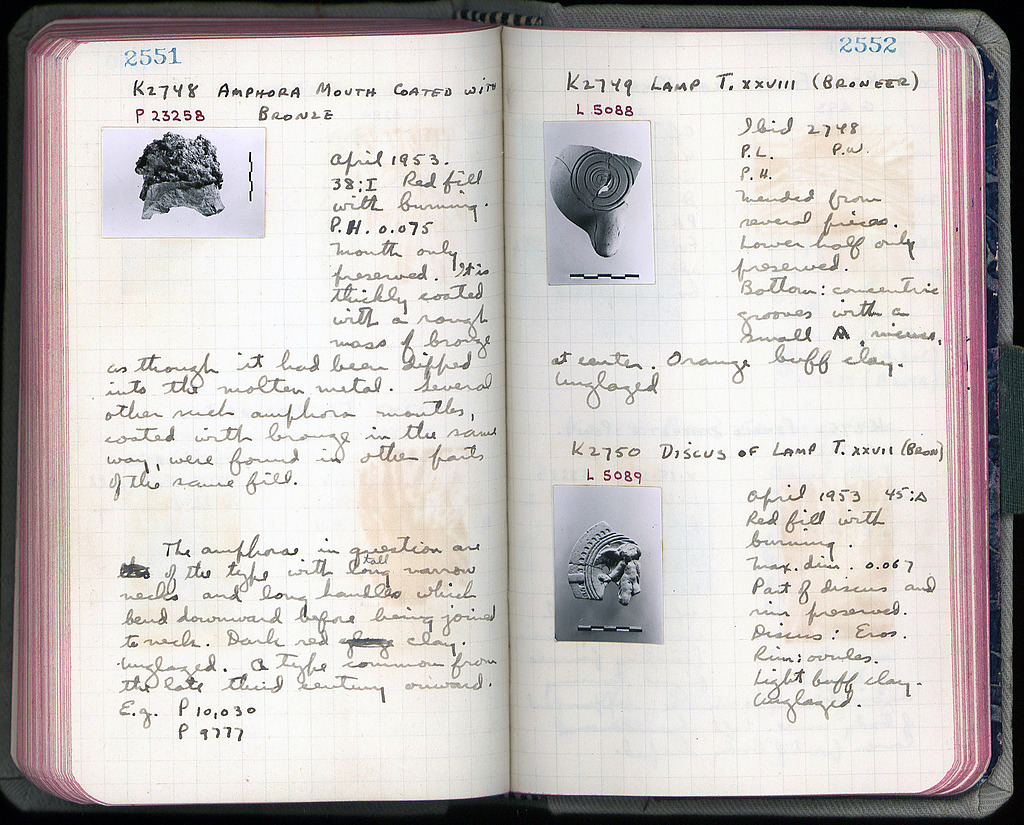 2551
K2748 AMPHORA MOUTH COATED WITH
P 23258 BRONZE
April 1953.
38:I Red fill
with burning.
P.H. 0.075
Mouth only
preserved. It is
thickly coated
with a rough
mass of bronze
as though it had been dipped
into the molten metal. Several
other such amphora mouths,
coated with bronze in the same
way, were found in other parts
of the same fill.
The amphorae in question are
of the type with long tall narrow
necks and long handles which
bend downward before being joined
to neck. Dark red clay.
Unglazed. A type common from
the late third century onward.
E.g. P 10,030
P 9777
2552
K2749 LAMP T. XXVIII (BRONEER)
L 5088
Ibid 2748
P.L. P.W.
P.H.
Mended from
several pieces.
Lower half only
preserved.
Bottom: concentric
grooves with a
small A, incised,
at center. Orange buff clay.
Unglazed
K2750 DISCUS OF LAMP T. XXVII (BRON)
L 5089
April 1953 45:Δ
Red fill with
burning.
Max. dim. 0.067
Part of discus and
rim preserved.
Discus: Eros.
Rim: ovules.
Light buff clay.
Unglazed.